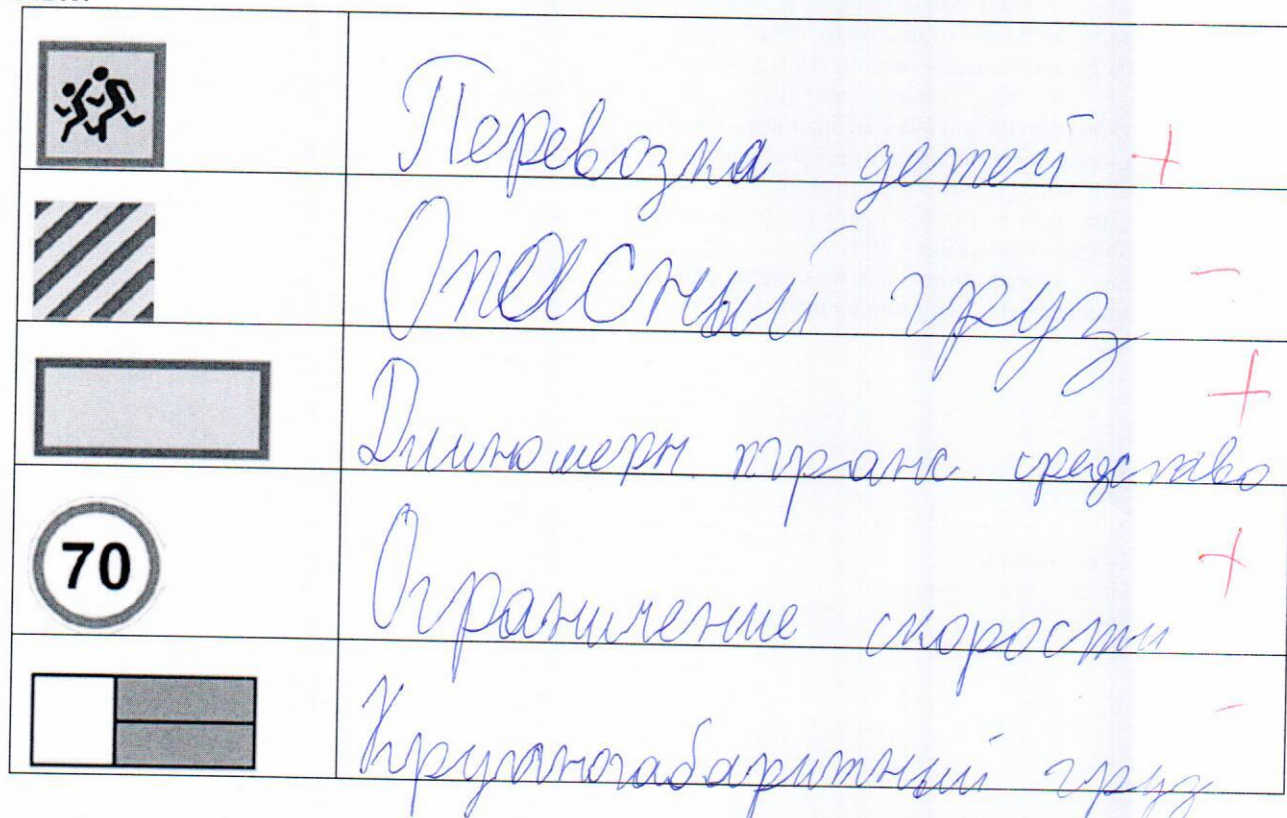 Перевозка детей +
Опасный груз −
Длиномерн. транс. средство +
70
Ограничение скорости +
Крупногабаритный груз -